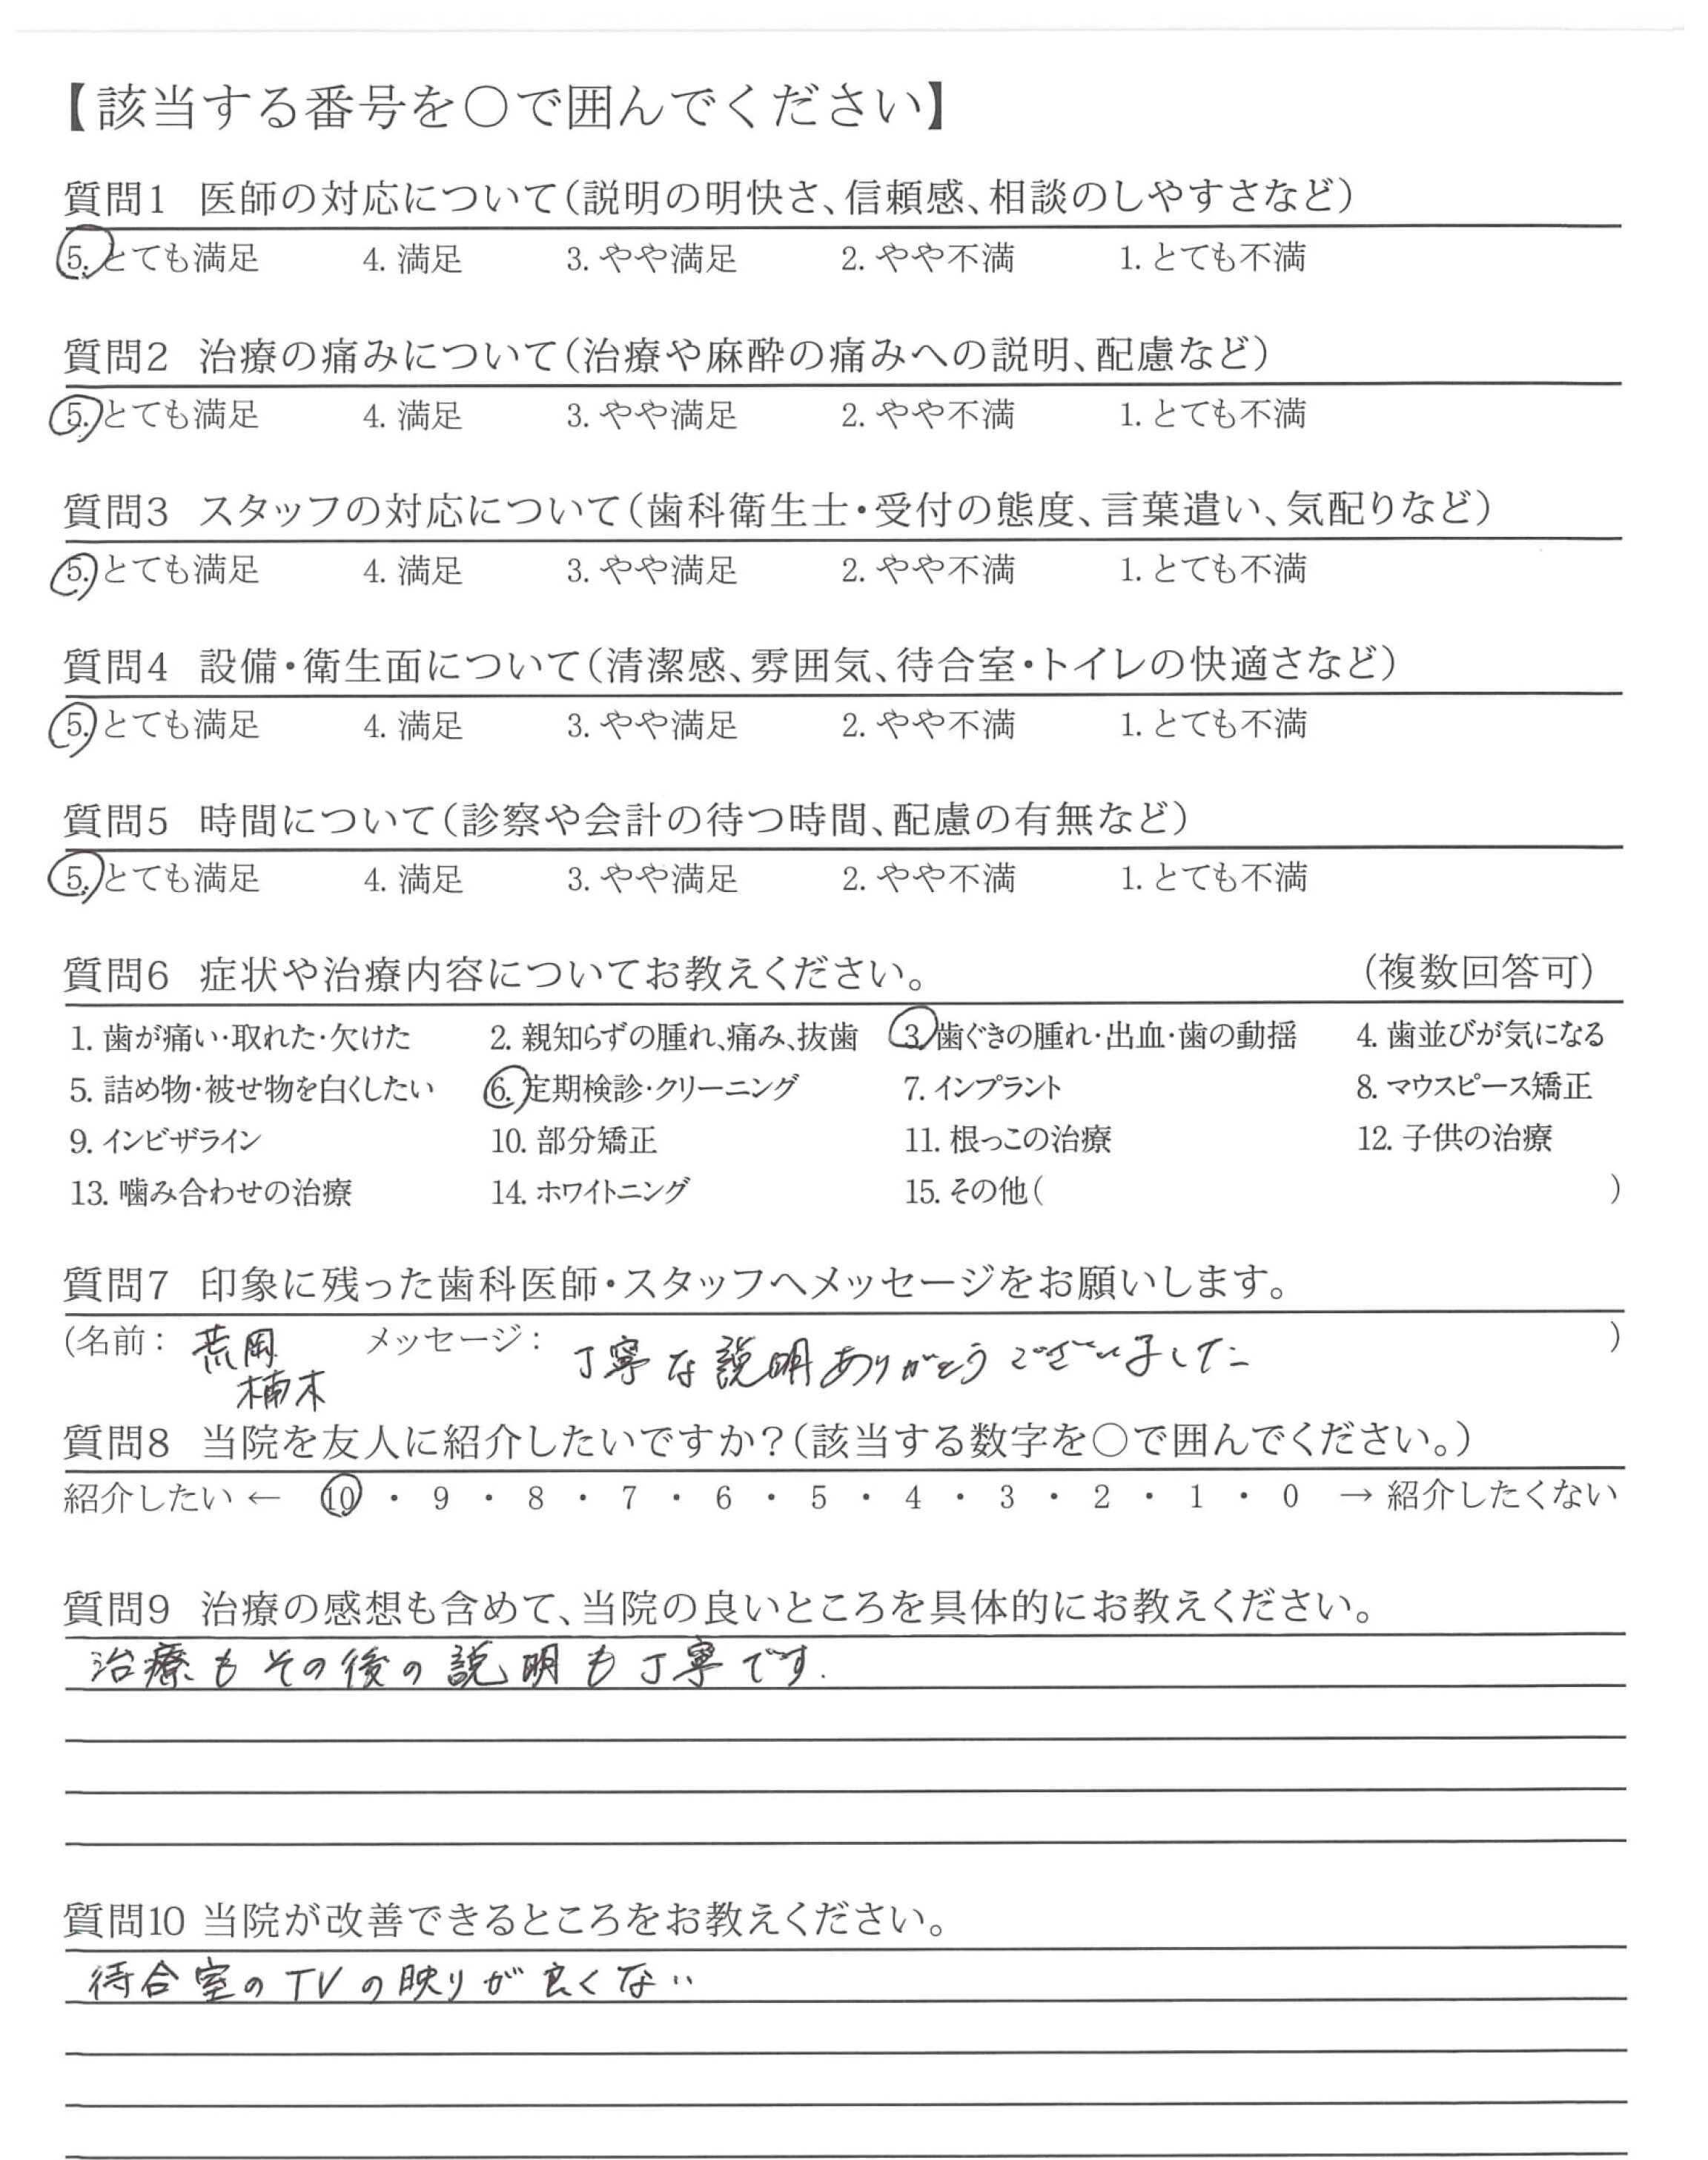 【該当する番号を〇で囲んでください】
質問1 医師の対応について(説明の明快さ、信頼感、相談のしやすさなど)
5. とても満足 4. 満足 3. やや満足 2. やや不満 1. とても不満
質問2 治療の痛みについて(治療や麻酔の痛みへの説明、配慮など)
5. とても満足 4. 満足 3. やや満足 2. やや不満 1. とても不満
質問3 スタッフの対応について(歯科衛生士・受付の態度、言葉遣い、気配りなど)
5. とても満足 4. 満足 3. やや満足 2. やや不満 1. とても不満
質問4 設備・衛生面について(清潔感、雰囲気、待合室・トイレの快適さなど)
5. とても満足 4. 満足 3. やや満足 2. やや不満 1. とても不満
質問5 時間について(診察や会計の待つ時間、配慮の有無など)
5. とても満足 4. 満足 3. やや満足 2. やや不満 1. とても不満
質問6 症状や治療内容についてお教えください。 (複数回答可)
1. 歯が痛い・取れた・欠けた 2. 親知らずの腫れ、痛み、抜歯 3. 歯ぐきの腫れ・出血・歯の動揺 4. 歯並びが気になる
5. 詰め物・被せ物を白くしたい 6. 定期検診・クリーニング 7. インプラント 8. マウスピース矯正
9. インビザライン 10. 部分矯正 11. 根っこの治療 12. 子供の治療
13. 噛み合わせの治療 14. ホワイトニング 15. その他( )
質問7 印象に残った歯科医師・スタッフへメッセージをお願いします。
(名前: 荒岡 メッセージ: 丁寧な説明ありがとうございました )
楠木
質問8 当院を友人に紹介したいですか?(該当する数字を〇で囲んでください。)
紹介したい ← 10 ・ 9 ・ 8 ・ 7 ・ 6 ・ 5 ・ 4 ・ 3 ・ 2 ・ 1 ・ 0 → 紹介したくない
質問9 治療の感想も含めて、当院の良いところを具体的にお教えください。
治療もその後の説明も丁寧です.
質問10 当院が改善できるところをお教えください。
待合室のTVの映りが良くない